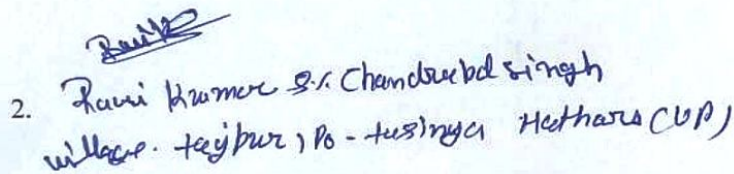 Ravi
2. Ravi Kumar S/o Chandrabal singh
village. tajpur, Po - tusinya Hathars (UP)